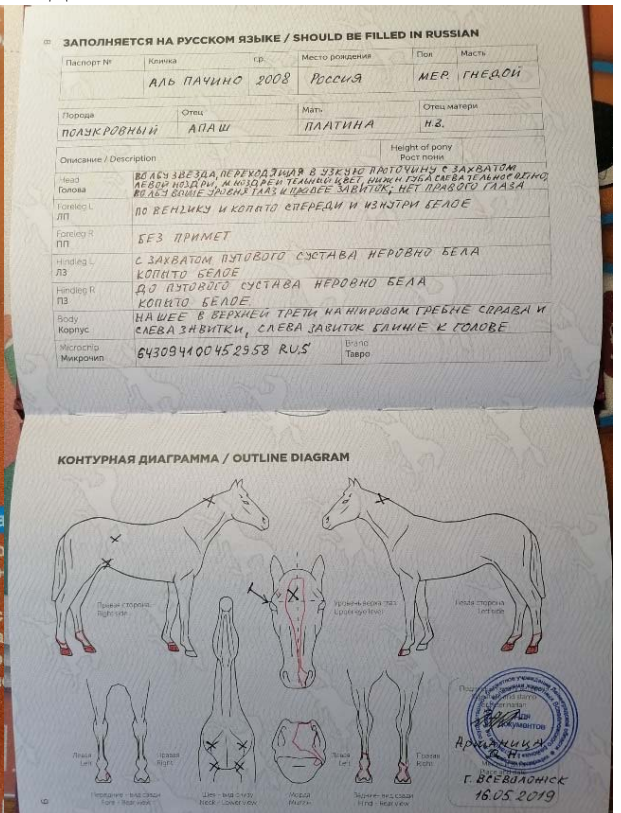 8
ЗАПОЛНЯЕТСЯ НА РУССКОМ ЯЗЫКЕ / SHOULD BE FILLED IN RUSSIAN
Паспорт № Кличка г.р. Место рождения Пол Масть
АЛЬ ПАЧИНО 2008 РОССИЯ МЕР. ГНЕДОЙ
Порода Отец Мать Отец матери
ПОЛУКРОВНЫЙ АПАШ ПЛАТИНА Н.В.
Описание / Description Height of pony
Рост пони
Head
Голова
ВО ЛБУ ЗВЕЗДА, ПЕРЕХОДЯЩАЯ В УЗКУЮ ПРОТОЧИНУ С ЗАХВАТОМ
ЛЕВОЙ НОЗДРИ, М. НОЗДРЕЙ ТЕЛЬНЫЙ ЦВЕТ, НИЖН ГУБА
ВО ЛБУ ВЫШЕ УРОВНЯ ГЛАЗ ЗАВИТОК, НЕТ ПРАВОГО ГЛАЗА
Foreleg L
ЛП
ПО ВЕНЧИКУ И КОПЫТО СПЕРЕДИ И ИЗНУТРИ БЕЛОЕ
Foreleg R
ПП
БЕЗ ПРИМЕТ
Hindleg L
ЛЗ
С ЗАХВАТОМ ПУТОВОГО СУСТАВА НЕРОВНО БЕЛА
КОПЫТО БЕЛОЕ
Hindleg R
ПЗ
ДО ПУТОВОГО СУСТАВА НЕРОВНО БЕЛА
КОПЫТО БЕЛОЕ
Body
Корпус
НА ШЕЕ В ВЕРХНЕЙ ТРЕТИ НА ЖИРОВОМ ГРЕБНЕ СПРАВА И
СЛЕВА ЗАВИТКИ, СЛЕВА ЗАВИТОК БЛИЖЕ К ГОЛОВЕ
Microchip
Микрочип
643094100452958 RUS
Brand
Тавро
КОНТУРНАЯ ДИАГРАММА / OUTLINE DIAGRAM
Правая сторона
Right side
Уровень верха глаз
Upper eye level
Левая сторона
Left side
Левая
Left
Правая
Right
Левая
Left
Правая
Right
Передние - вид сзади
Fore - Rear view
Шея - вид снизу
Neck - Lower view
Морда
Muzzle
Задние - вид сзади
Hind - Rear view
Для
документов
Г. ВСЕВОЛОЖСК
16.05.2019
9